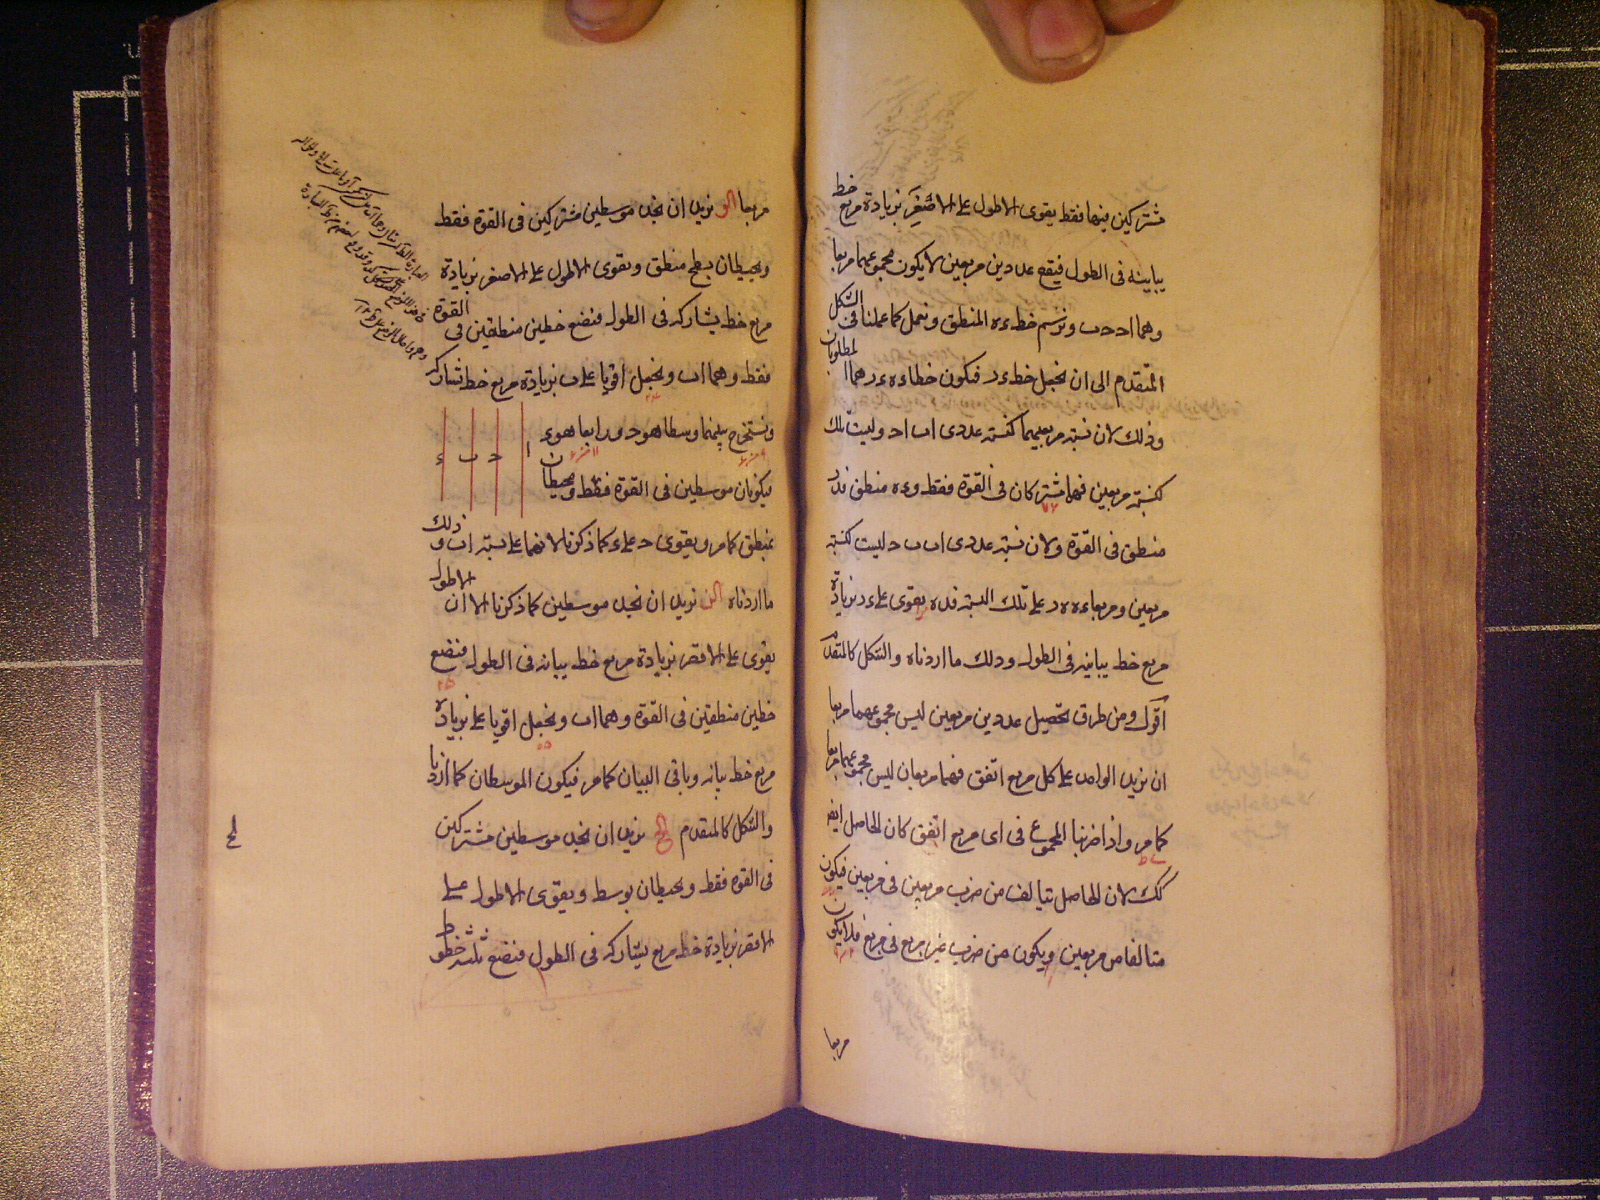 مشتركين فيهما فقط يقوى الاطول على الاصغر بزيادة مربع خط
يباينه فى الطول فيقع عددين مربعين لا يكون مجموعهما مربعا
وهما اح حب ونرسم خط ءه المنطق ونعمل كما عملنا فى الشكل
المتقدم الى ان نجعل خط ءر فيكون خطا ءه ءر هما المطلوبان
وذلك لان نسبة مربعيهما كنسبة عددى اب اح وليست تلك
كنسبة مربعين فهما مشتركان فى القوة فقط وءه منطق فدر
منطق فى القوة ولان نسبة عددى اب ب ح ليست كنسبة
مربعين ومربعا ءه ه ر على تلك النسبة فده يقوى على ءر بزيادة
مربع خط يباينه فى الطول وذلك ما اردناه والشكل كالمتقدم
اقول ومن طرق تحصيل عددين مربعين ليس مجموعهما مربعا
ان نزيد الواحد على كل مربع اتفق فهما مربعان ليس مجموعهما مربعا
كما مر واذا ضربنا المجموع فى اى مربع اتفق كان الحاصل ايضا
كك لان الحاصل يتالف من ضرب مربعين فى مربعين فيكون
متالفا من مربعين ويكون من ضرب غير مربع فى مربع فلا يكون
مربعا
مربعا الو نريد ان نجد موسطين مشتركين فى القوة فقط
ويحيطان بسطح منطق ويقوى الاطول على الاصغر بزيادة
مربع خط يشاركه فى الطول فنضع خطين منطقين فى القوة
فقط وهما اب ونجعل ا قويا على ب بزيادة مربع خط تشاركه
ونستخرج بينهما وسطا هو ح ورابعا هو ء
ا ح ب ء
فيكونان موسطين فى القوة فقط ويحيطان
بمنطق كما مر ويقوى ح على ء كما ذكرنا لانهما على نسبة اب وذلك
ما اردناه الز نريد ان نجد موسطين كما ذكرنا الا ان الاطول
يقوى على الاقصر بزيادة مربع خط يباينه فى الطول فنضع
خطين منطقين فى القوة وهما اب ونجعل ا قويا على بزيادة
مربع خط يباينه وباقى البيان كما مر فيكون الموسطان كما اردنا
والشكل كالمتقدم الح نريد ان نجد موسطين مشتركين
فى القوة فقط ويحيطان بموسط ويقوى الاطول على
الاقصر بزيادة خط مربع يشاركه فى الطول فنضع ثلثة خطوط
لح